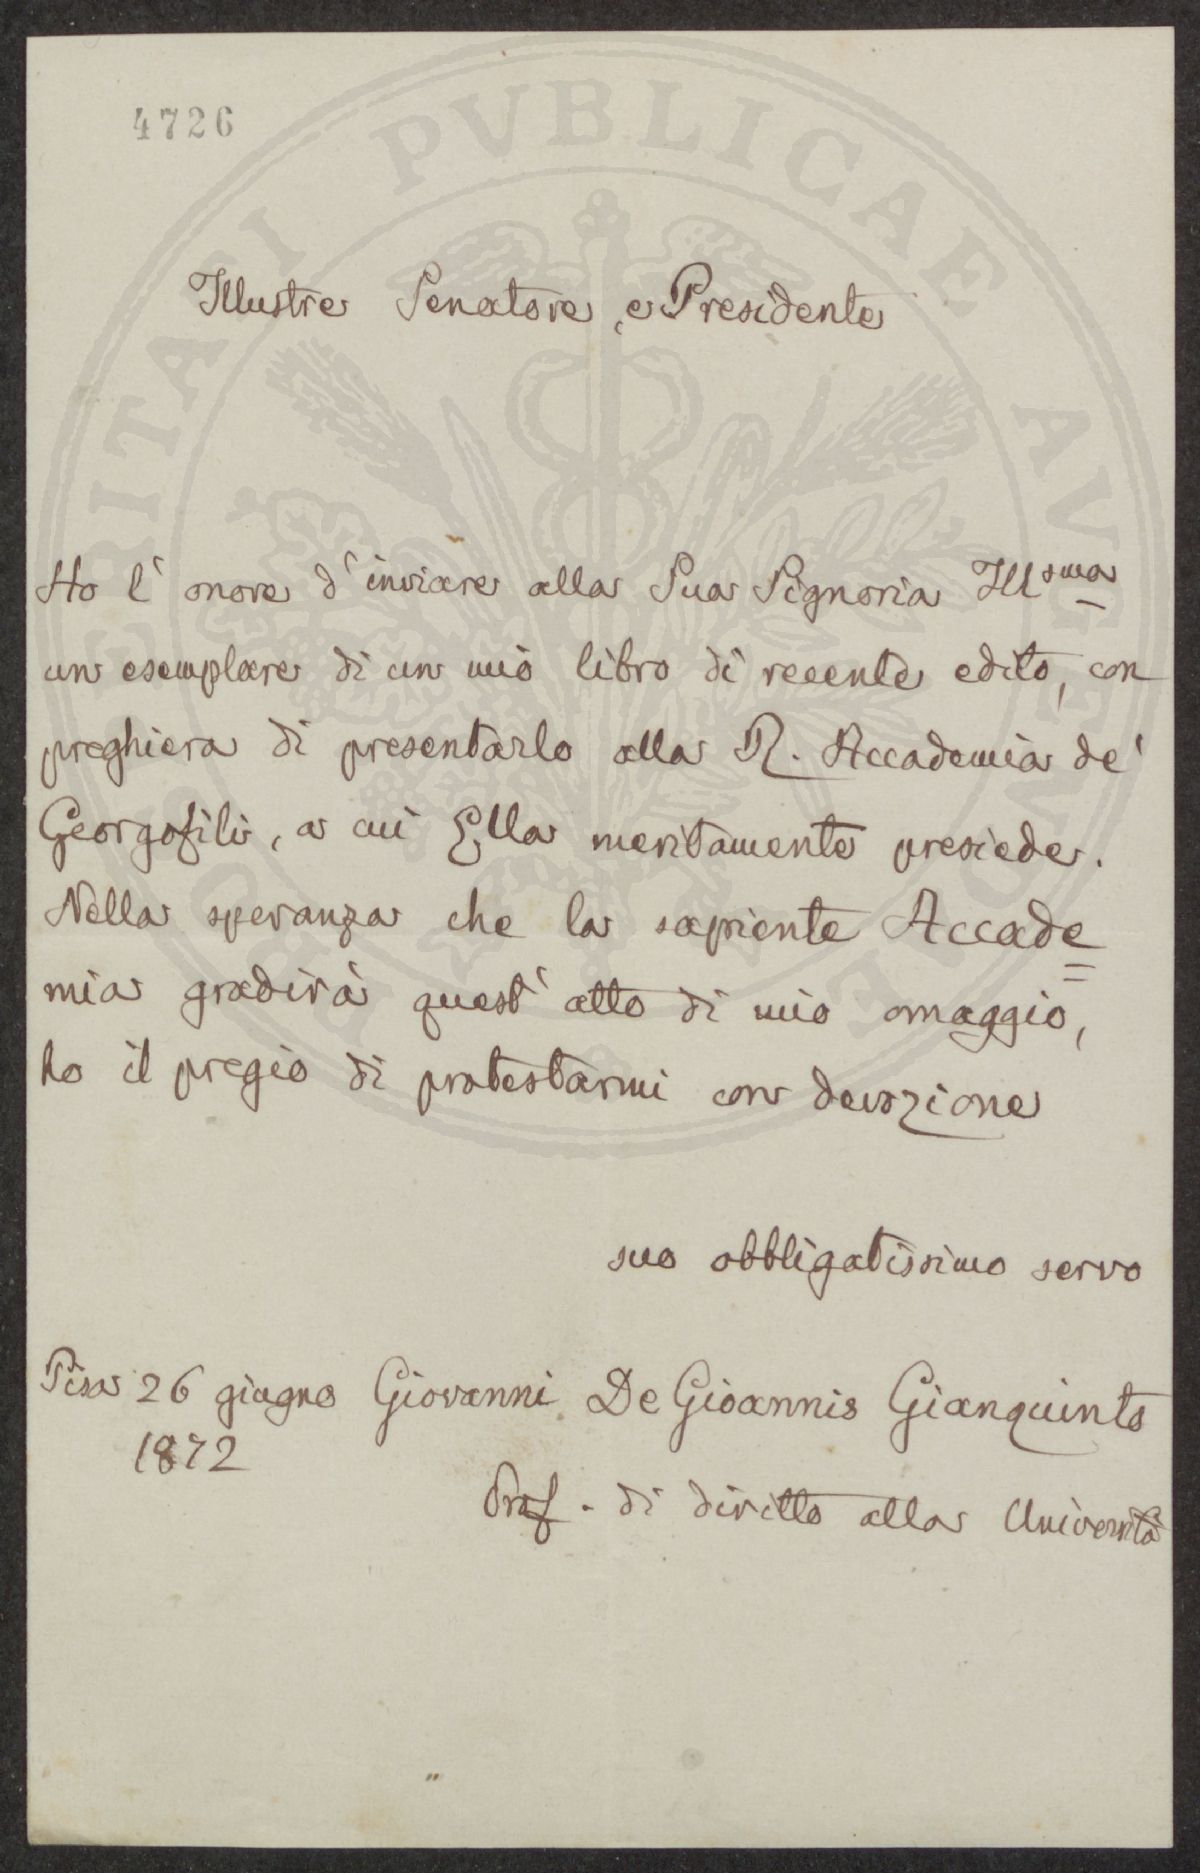 4726
PROSPERITATI PVBLICAE AVGENDAE
Illustre Senatore e Presidente
Ho l' onore d' inviare alla Sua Signoria Ill.sma
un esemplare di un mio libro di recente edito, con
preghiera di presentarlo alla R. Accademia de'
Georgofili, a cui Ella meritamente presiede.
Nella speranza che la sapiente Accade=
mia gradirà quest' atto di mio omaggio,
ho il pregio di protestarmi con devozione
suo obbligatissimo servo
Pisa 26 giugno Giovanni De Gioannis Gianquinto
1872
Prof. di diritto alla Università